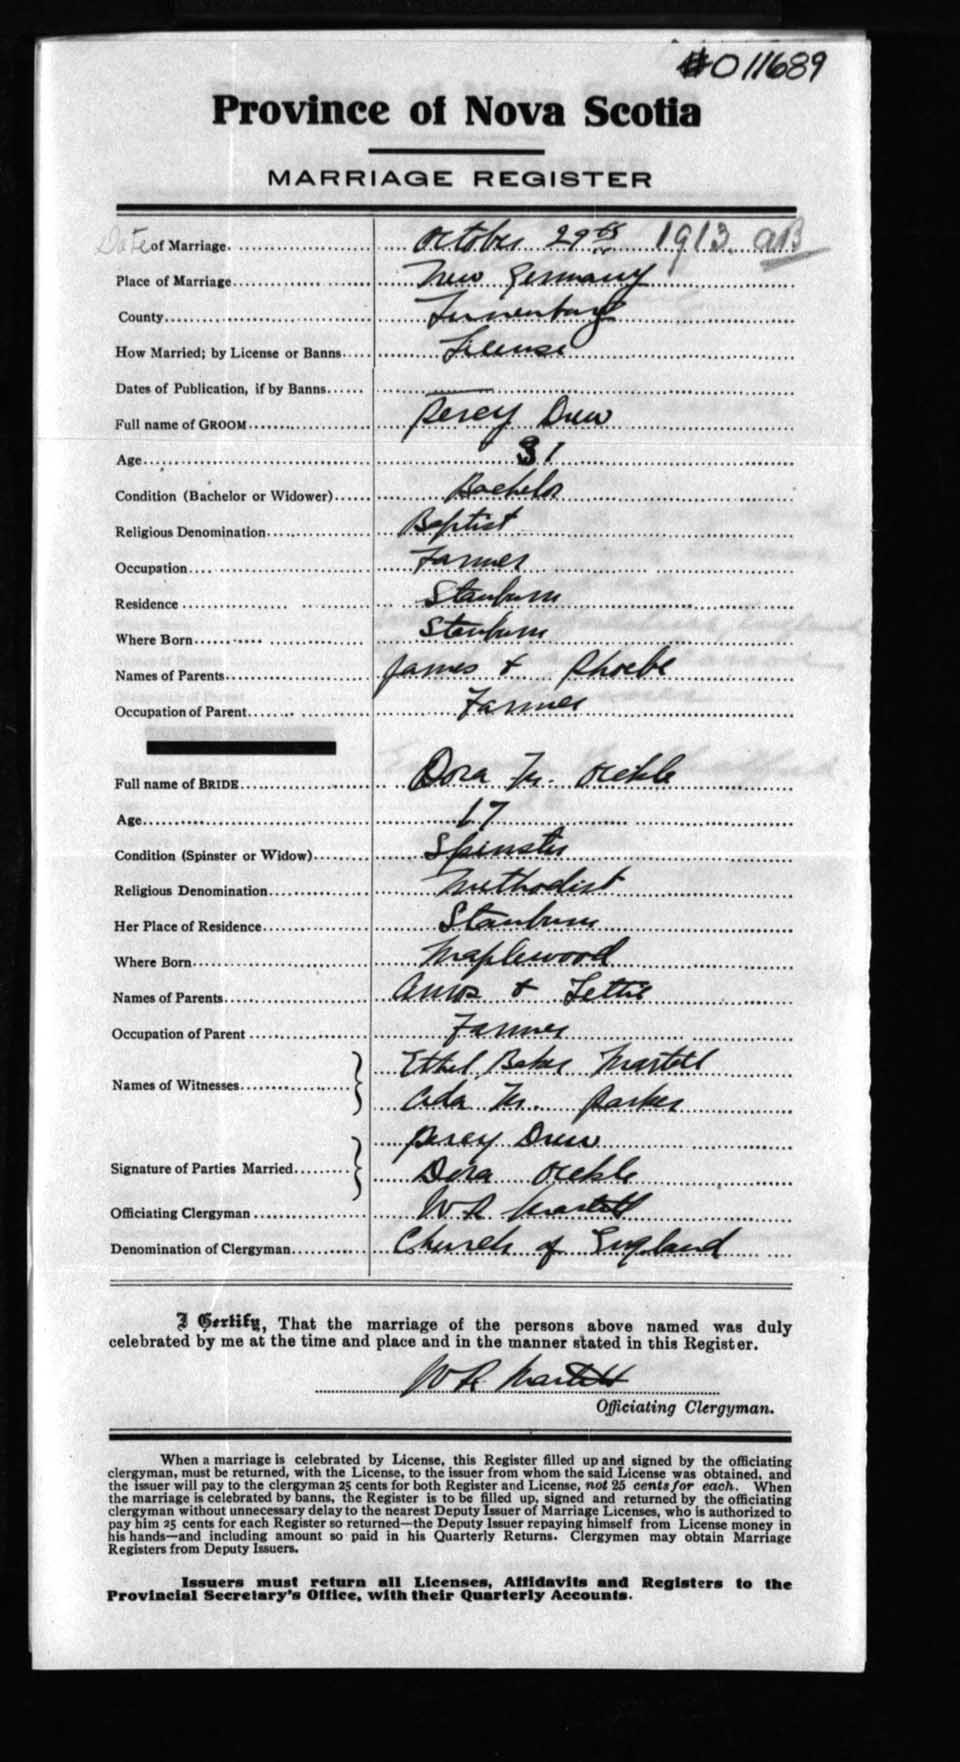 #011689
Province of Nova Scotia
MARRIAGE REGISTER
Date of Marriage. October 29th 1913. AB
Place of Marriage New Germany
County Lunenburg
How Married; by License or Banns License
Dates of Publication, if by Banns
Full name of GROOM Percy Drew
Age 31
Condition (Bachelor or Widower) Bachelor
Religious Denomination Baptist
Occupation Farmer
Residence Stanburn
Where Born Stanburn
Names of Parents James & Phoebe
Occupation of Parent Farmer
Full name of BRIDE Dora M. Oickle
Age 17
Condition (Spinster or Widow) Spinster
Religious Denomination Methodist
Her Place of Residence Stanburn
Where Born Maplewood
Names of Parents Amos & Lettie
Occupation of Parent Farmer
Names of Witnesses Ethel Baker Martell
Ada M. Parker
Signature of Parties Married Percy Drew
Dora Oickle
Officiating Clergyman W R Martell
Denomination of Clergyman Church of England
I Certify, That the marriage of the persons above named was duly
celebrated by me at the time and place and in the manner stated in this Register.
W R Martell
Officiating Clergyman.
When a marriage is celebrated by License, this Register filled up and signed by the officiating
clergyman, must be returned, with the License, to the issuer from whom the said License was obtained, and
the issuer will pay to the clergyman 25 cents for both Register and License, not 25 cents for each. When
the marriage is celebrated by banns, the Register is to be filled up, signed and returned by the officiating
clergyman without unnecessary delay to the nearest Deputy Issuer of Marriage Licenses, who is authorized to
pay him 25 cents for each Register so returned—the Deputy Issuer repaying himself from License money in
his hands—and including amount so paid in his Quarterly Returns. Clergymen may obtain Marriage
Registers from Deputy Issuers.
Issuers must return all Licenses, Affidavits and Registers to the
Provincial Secretary's Office, with their Quarterly Accounts.